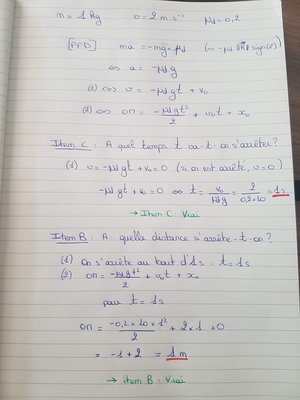 m = 1 kg   v = 2 m.s⁻¹   μd = 0,2
[PFD] ma = -mg × μd (= -μd ||R|| sign(v))
⇔ a = -μd g
(1) ⇔ v = -μd g t + v₀
(2) ⇔ on = -μd g t²/2 + v₀t + x₀
Item C : A quel temps t va-t-on s'arrêter ?
(1) v = -μd g t + v₀ = 0 (si on est arrêté, v = 0)
-μd g t + v₀ = 0 ⇔ t = v₀/μd g = 2/0,2×10 = 1s
→ Item C : Vrai
Item B : A quelle distance s'arrête-t-on ?
(1) On s'arrête au bout d'1s : t = 1s
(2) on = -μd g t²/2 + v₀t + x₀
pour t = 1s
on = -0,2 × 10 × 1²/2 + 2 × 1 + 0
= -1 + 2 = 1 m
→ item B : Vrai